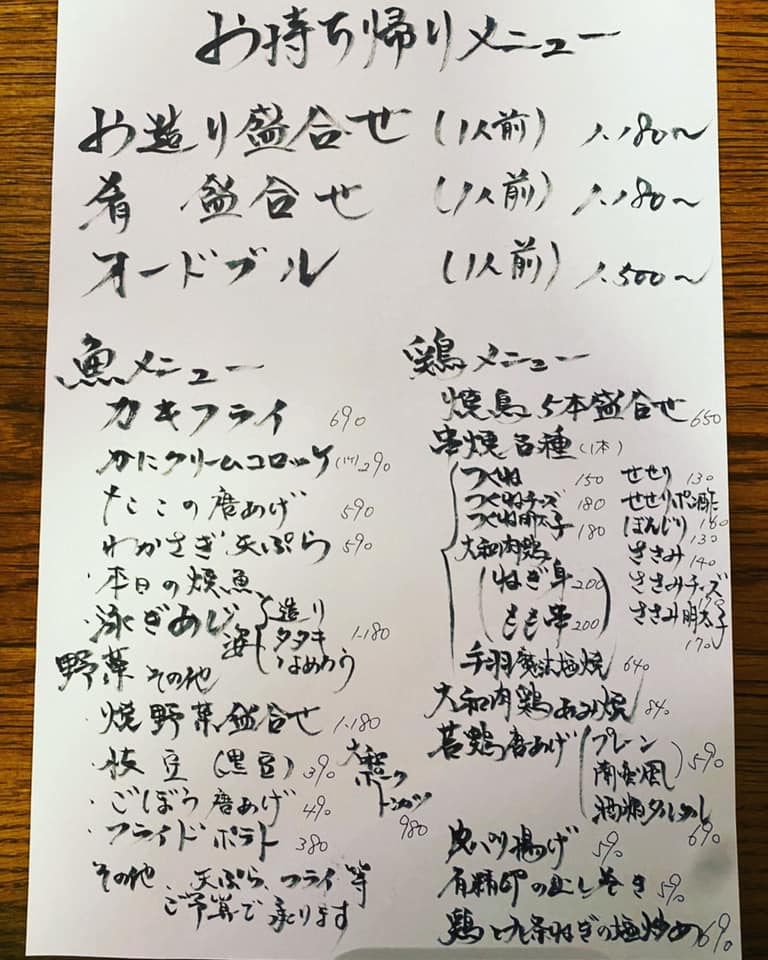 お持ち帰りメニュー
お造り盛合せ (1人前) 1.180〜
肴 盛合せ (1人前) 1.180〜
オードブル (1人前) 1.500〜
魚メニュー
カキフライ 690
かにクリームコロッケ(1ケ) 290
たこの唐あげ 590
わかさぎ天ぷら 590
・本日の焼魚
・泳ぎあじ 造り
姿 タタキ 1.180
なめろう
野菜 その他
・焼野菜盛合せ 1.180
・枝豆(黒豆) 390
・ごぼう唐あげ 490
・フライドポテト 380
大和ポーク
トンカツ
980
その他、天ぷら、フライ等
ご予算で承ります
鶏メニュー
焼鳥5本盛合せ 650
串焼各種(1本)
つくね 150 せせり 130
つくねチーズ 180 せせりポン酢 150
つくね明太子 180 ぼんじり 130
大和肉鶏 ささみ 140
ねぎ身 200 ささみチーズ
もも串 200 ささみ明太子
170
手羽魔法塩焼 640
大和肉鶏あみ焼 840
若鶏唐あげ プレーン
南蛮風 590
タルタル 690
皮パリ揚げ 590
有精卵の出し巻き 590
鶏と九条ねぎの塩炒め 690